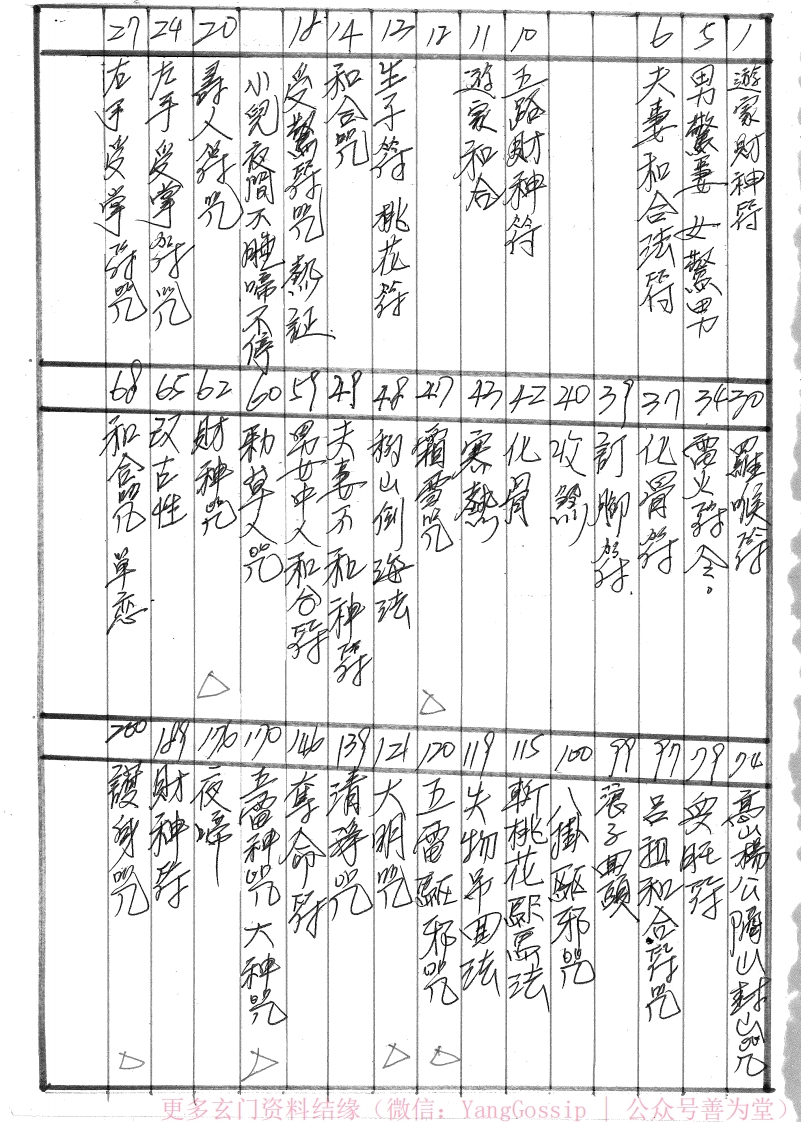 1 遊家財神符
5 男驚妻 女驚男
6 夫妻和合法符
10 五路財神符
11 遊家和合
12
13 生子符 桃花符
14 和合咒
18 受驚符咒 熱証
小兒夜間不睡啼不停
20 壽人符咒
24 左手受掌符咒
27 右手受掌符咒
30 羅喉符
34 雷火符令。
37 化骨符
39 訂腳符
40 收煞
42 化骨
43 寒熱
47 霜雪咒
48 移山倒海法
49 夫妻不和神符
59 男女中人和合符
60 勅草人咒
62 財神咒
65 改古性
68 和合咒 單恋
74 高山楊公隔山封山咒
79 安胎符
97 呂祖和合符咒
99 浪子回頭
100 八掛驅邪咒
115 斬桃花駅馬法
119 失物吊回法
120 五雷驅邪咒
121 大明咒
139 清淨咒
146 奪命符
170 五雷神咒 大神咒
176 夜啼
189 財神符
200 護身咒
更多玄门资料结缘（微信：YangGossip | 公众号善为堂）